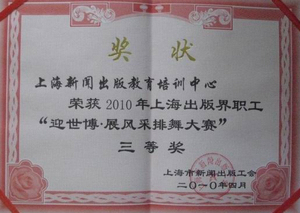 奖状
上海新闻出版教育培训中心
荣获2010年上海出版界职工
“迎世博·展风采排舞大赛”
三等奖
上海市新闻出版工会
二〇一〇年四月